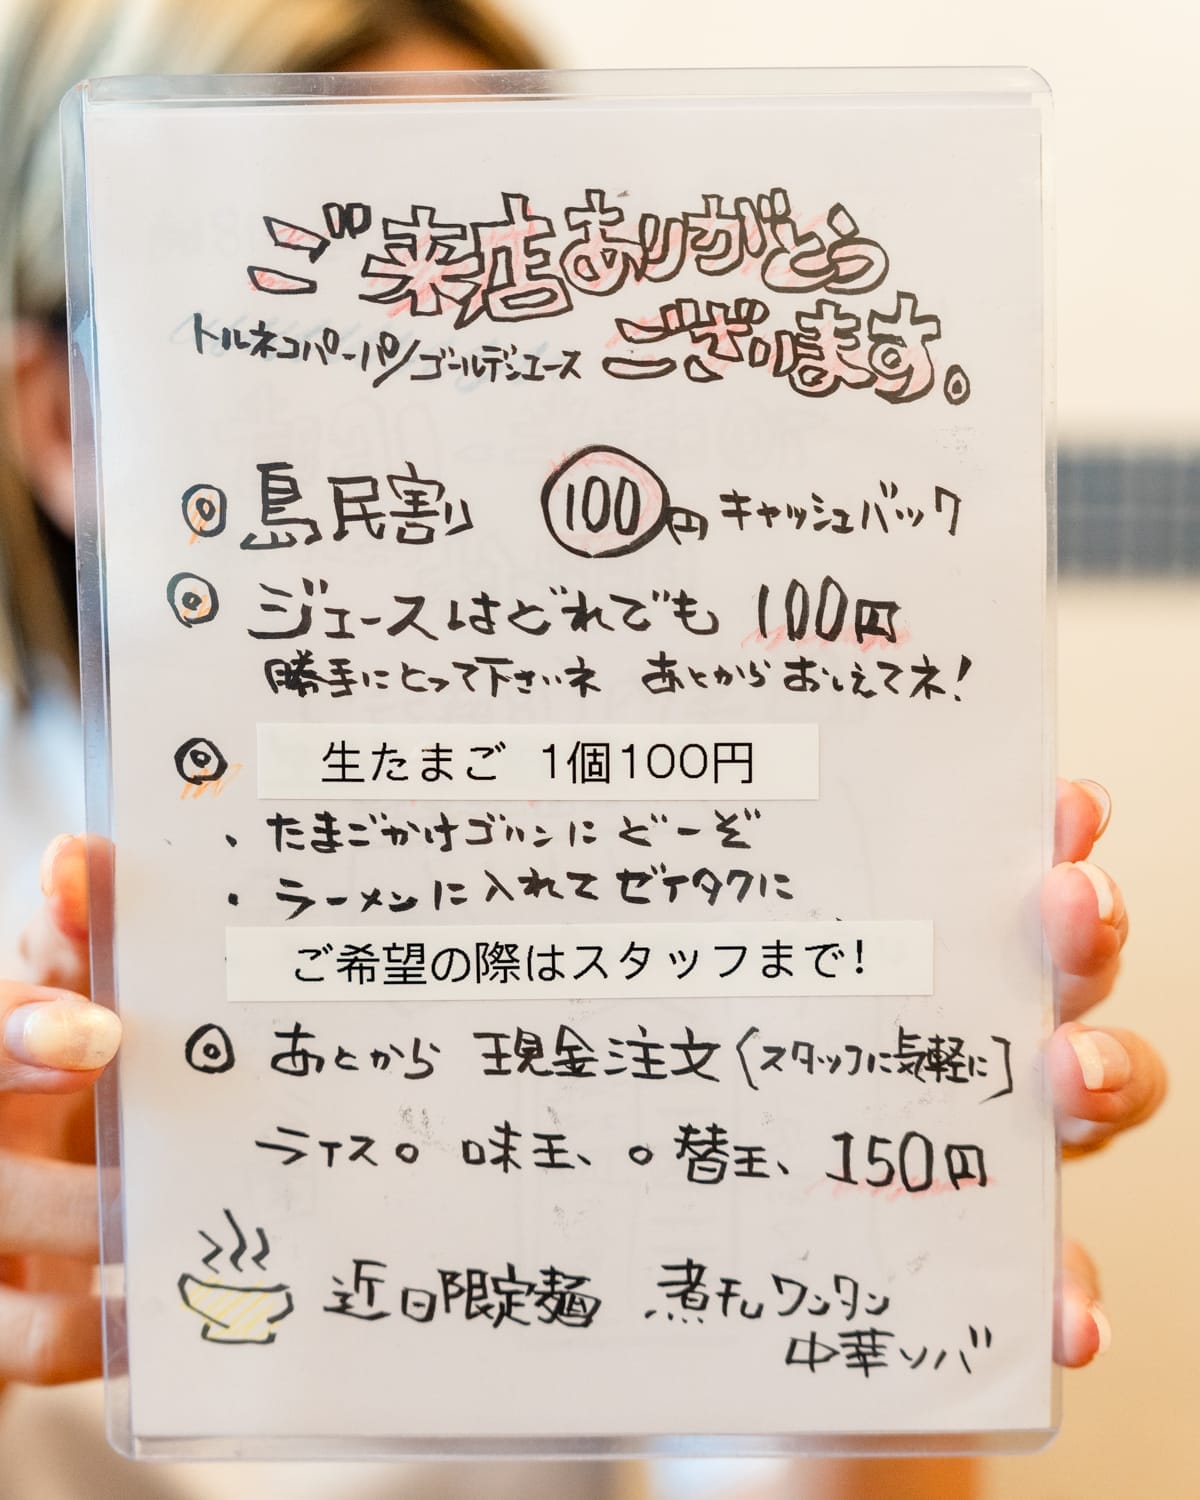 ご来店ありがとう
ございます。
トルネコパーパ/ゴールデンユース
◎島民割 100円キャッシュバック
◎ジュースはどれでも 100円
勝手にとって下さいネ あとからおしえてネ!
◎生たまご 1個100円
・たまごかけゴハンにどーぞ
・ラーメンに入れてゼイタクに
ご希望の際はスタッフまで!
◎あとから 現金注文(スタッフに気軽に)
ライス。味玉、。替玉、150円
近日限定麺 煮干しワンタン
中華ソバ